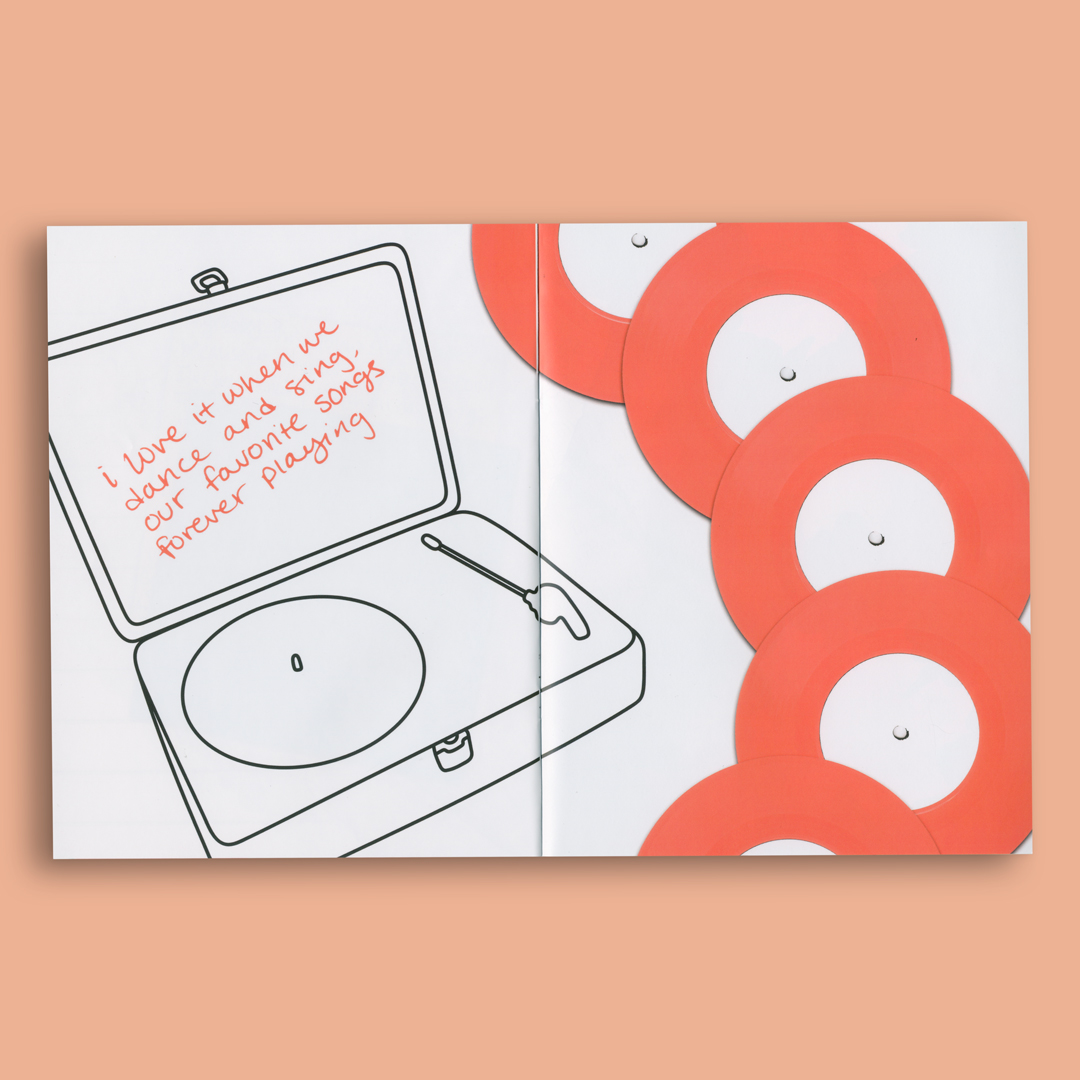 i love it when we
dance and sing,
our favorite songs
forever playing